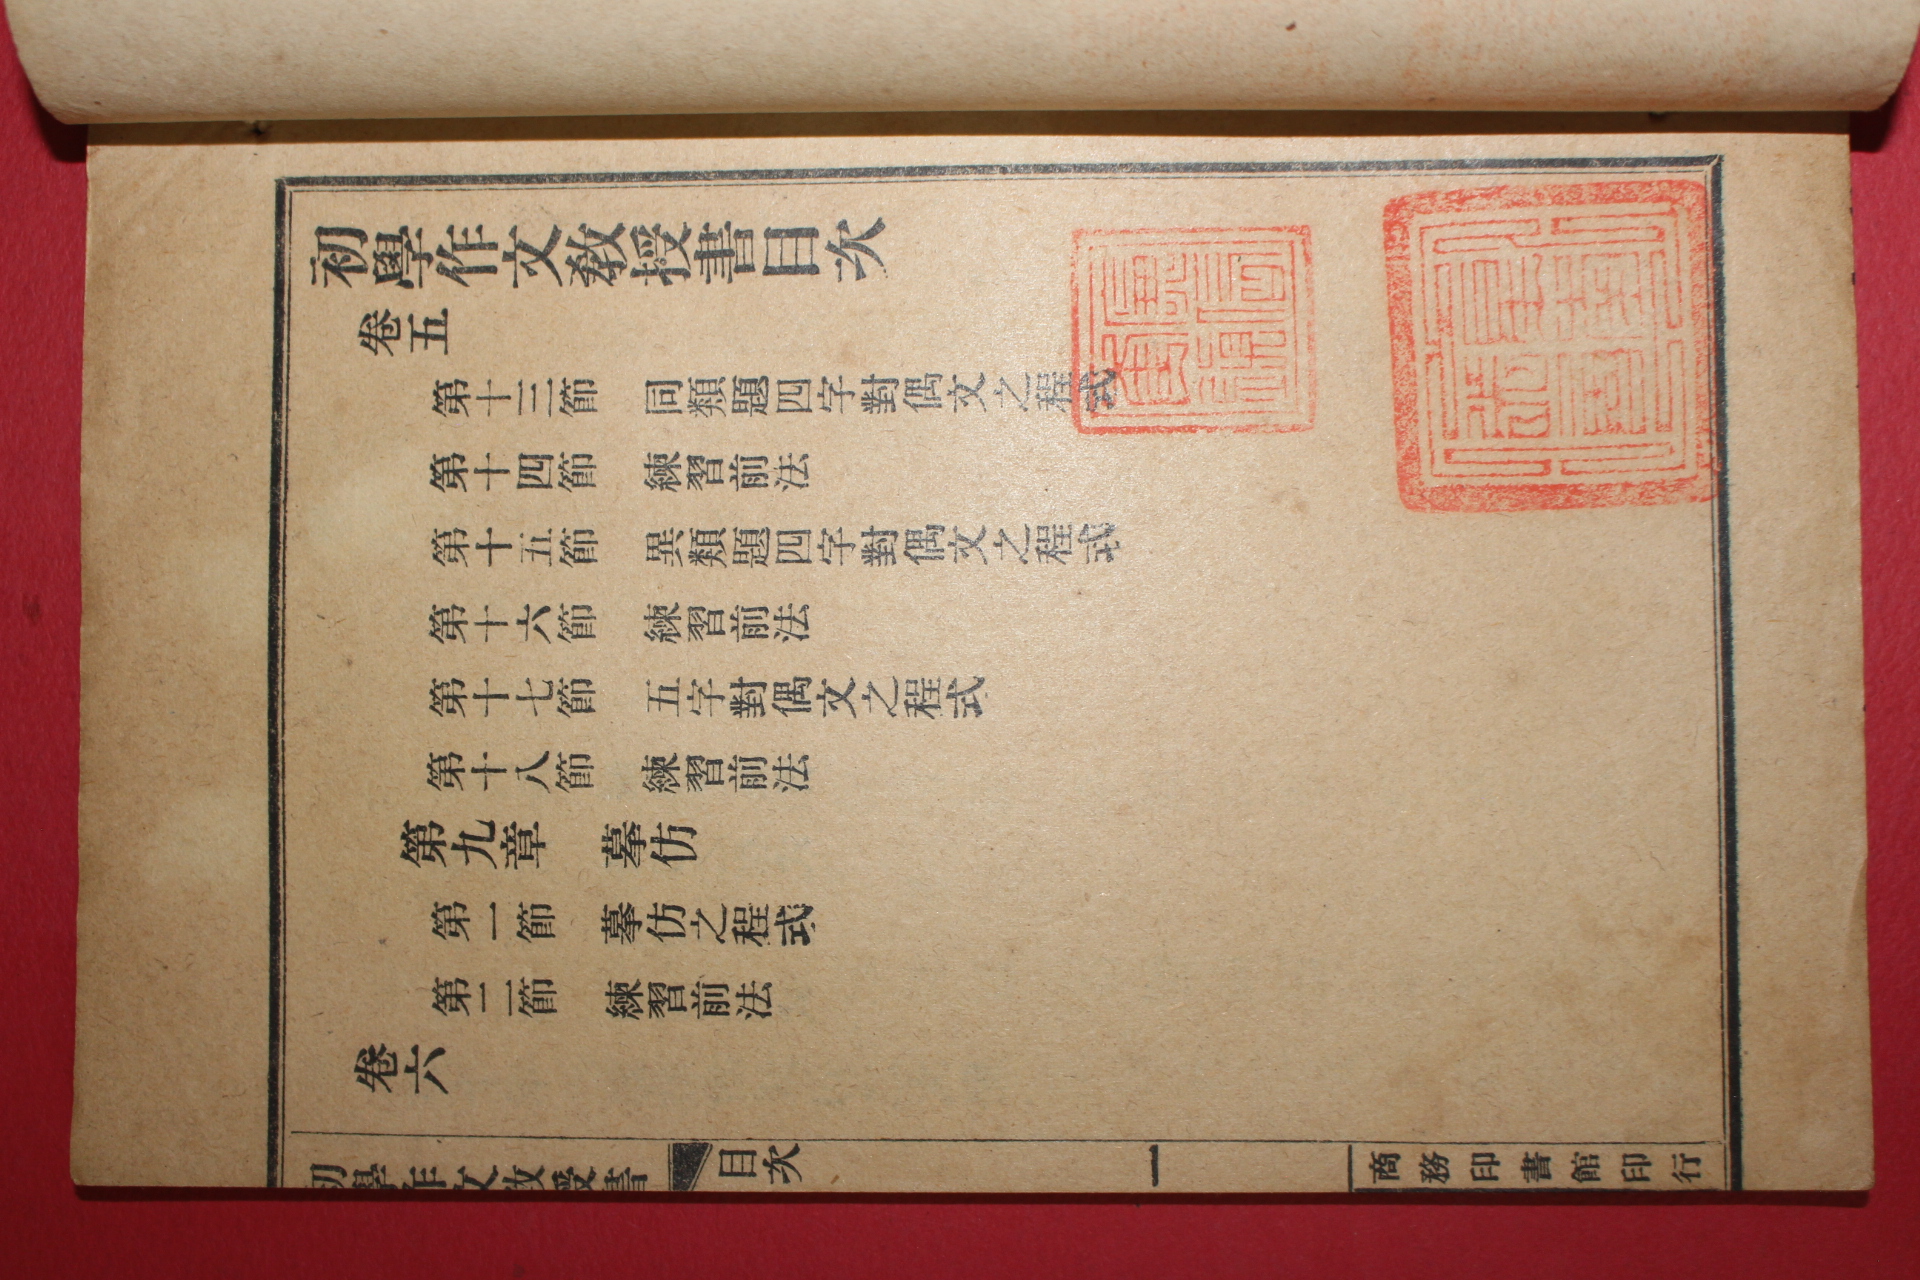 初學作文教授書目次
卷五
第十三節　同類題四字對偶文之程式
第十四節　練習前法
第十五節　異類題四字對偶文之程式
第十六節　練習前法
第十七節　五字對偶文之程式
第十八節　練習前法
第九章　摹仿
第一節　摹仿之程式
第二節　練習前法
卷六
初學作文教授書
目次
一
商務印書館印行